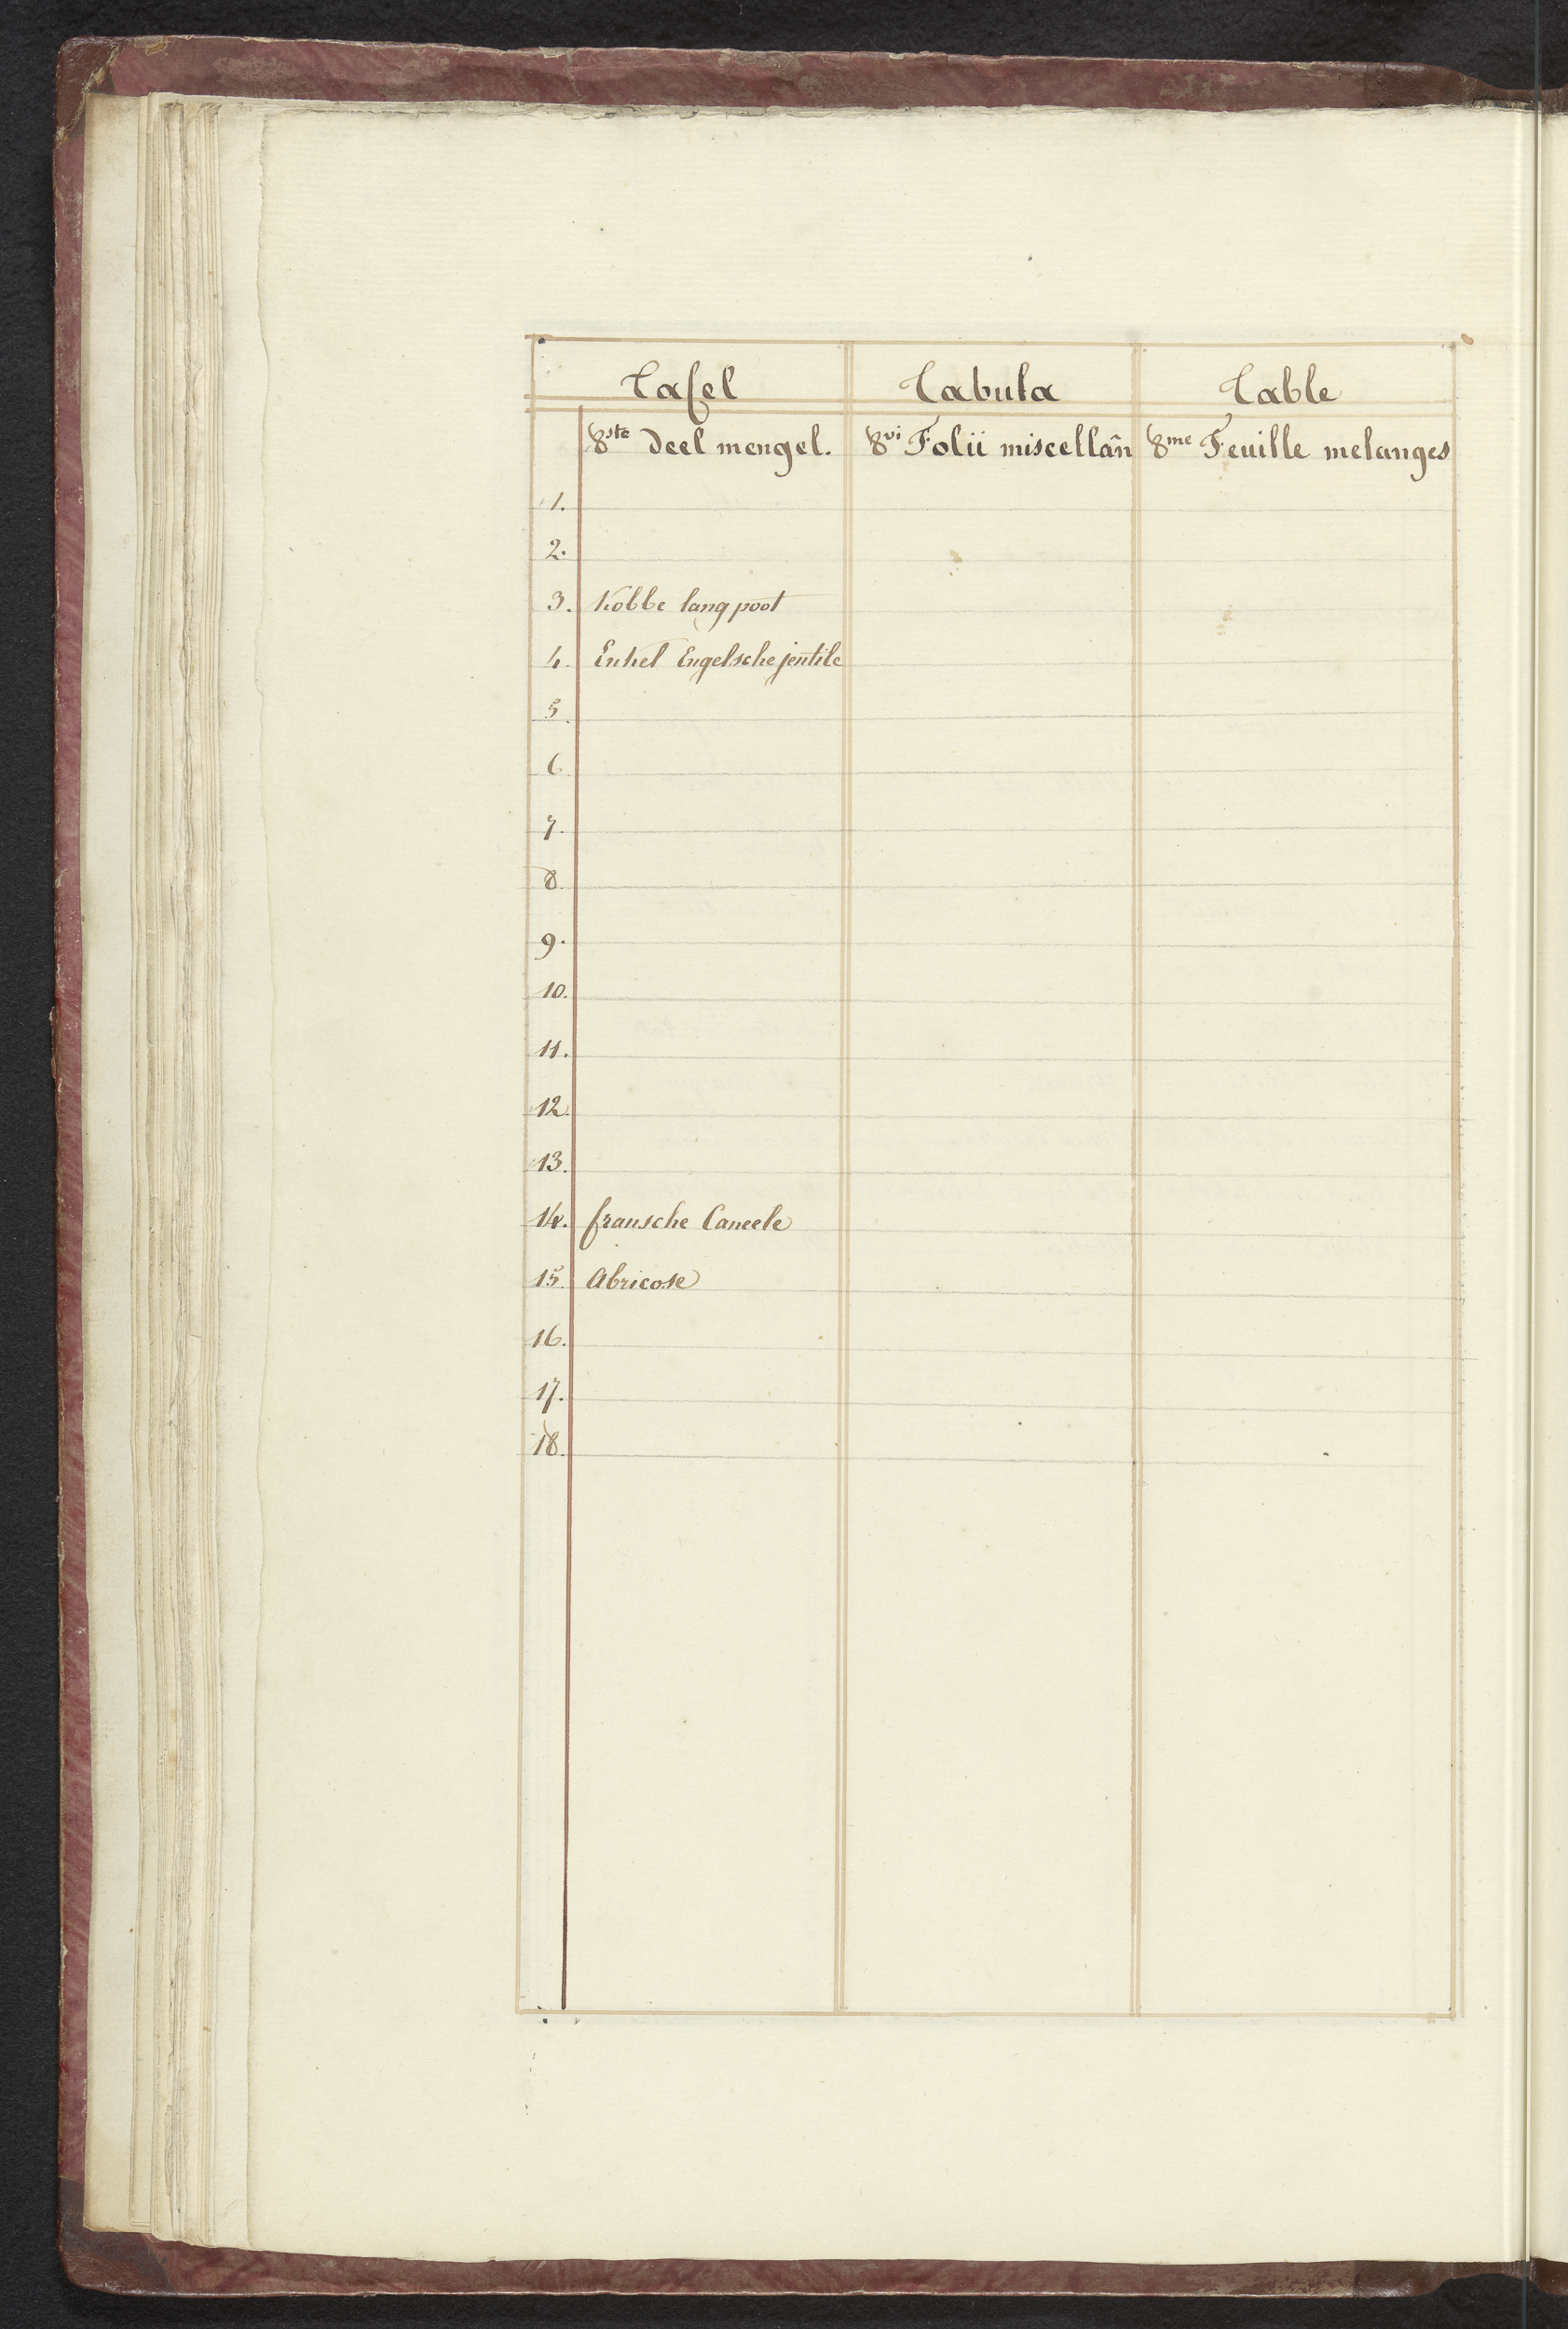 Tafel Tabula Table
8ste deel mengel. 8vi Folii miscellãn 8me Feuille melanges
1.
2.
3. Kobbe lang poot
4. Enkel Engelsche jentile
5.
6.
7.
8.
9.
10.
11.
12.
13.
14. fransche Caneele
15. Abricose
16.
17.
18.